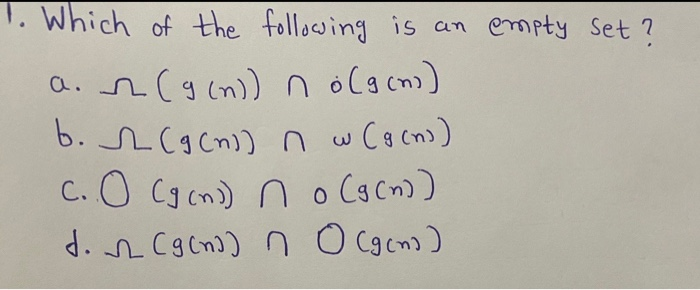 1. Which of the following is an empty set?
a. Ω(g(n)) ∩ o(g(n))
b. Ω(g(n)) ∩ ω(g(n))
c. O(g(n)) ∩ o(g(n))
d. Ω(g(n)) ∩ O(g(n))